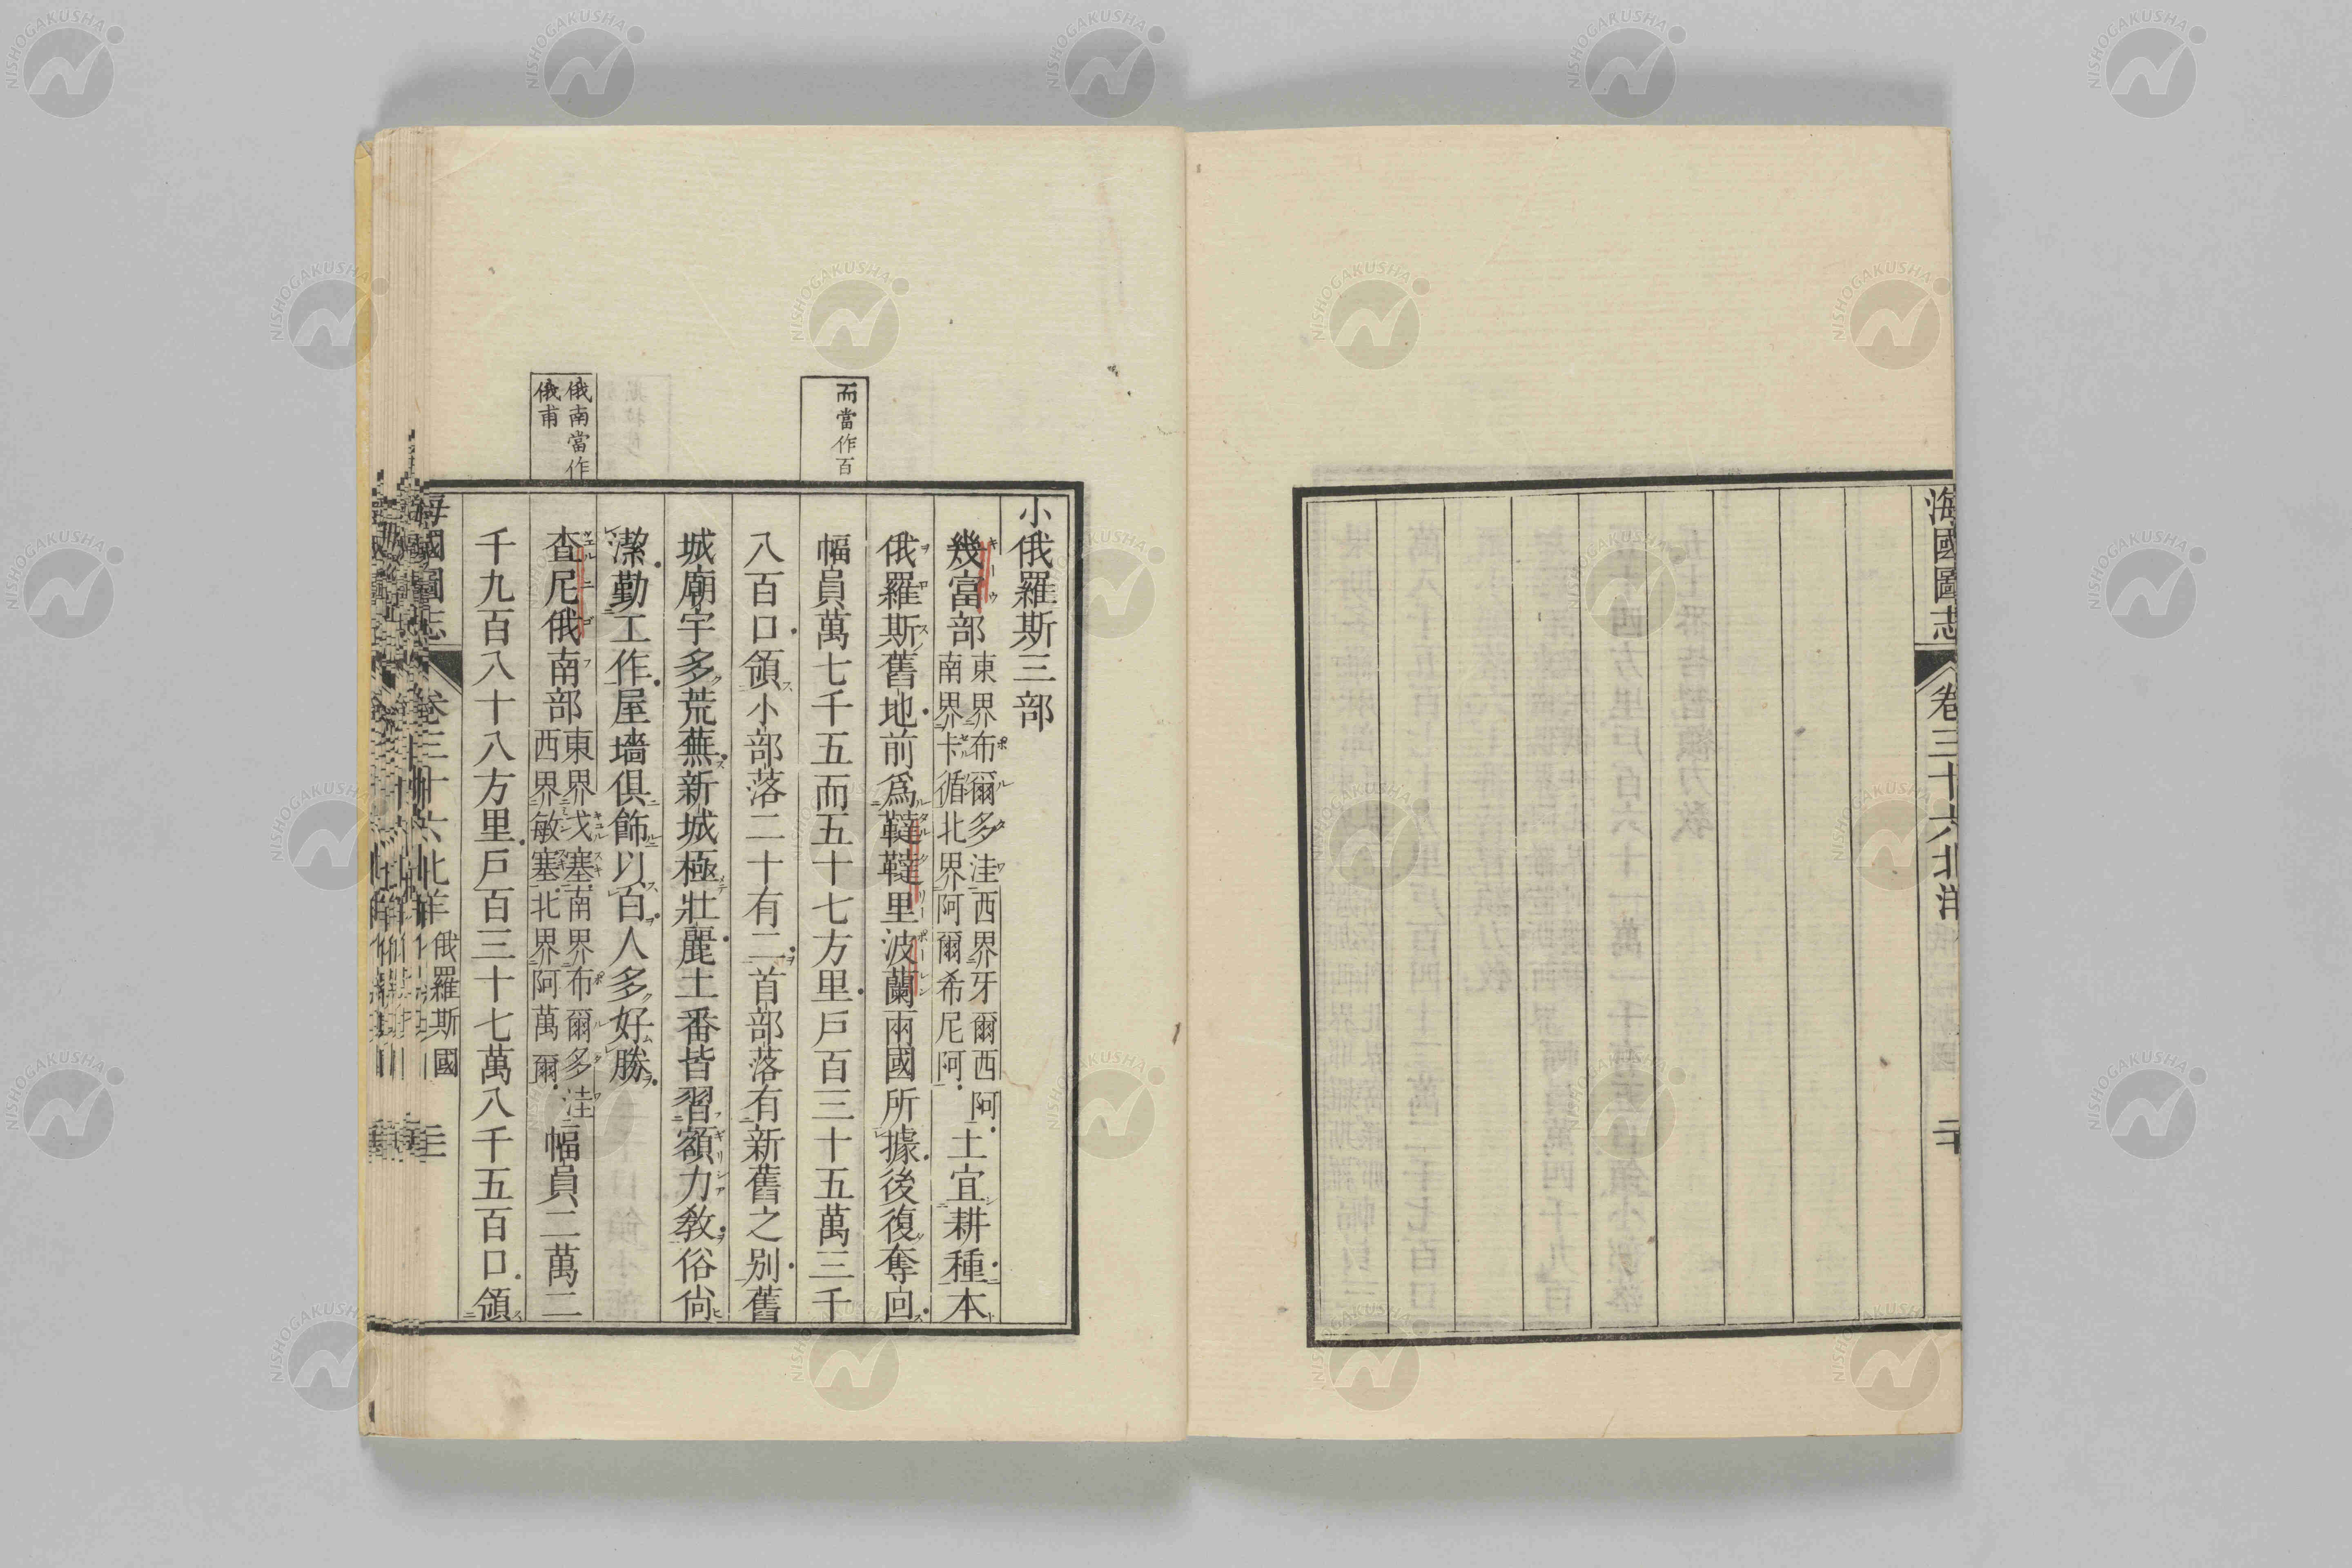 海國圖志 卷三十六 北洋
小俄羅斯三部
幾富部 東界布爾多洼西界牙爾西阿 南界卡循北界阿爾希尼阿 土宜耕種本
俄羅斯舊地前爲韃韃里波蘭兩國所據後復奪回
幅員萬七千五而五十七方里戶百三十五萬三千
而當作百
八百口領小部落二十有二首部落有新舊之別舊
城廟宇多荒蕪新城極壯麗土番皆習額力教俗尙
潔勤工作屋墻俱飾以百人多好勝
查尼俄南部 東界戈塞南界布爾多洼 西界敏塞北界阿萬爾 幅員二萬二
俄南當作
俄甫
千九百八十八方里戶百三十七萬八千五百口領
海國圖志 卷三十六 北洋 俄羅斯國
NISHOGAKUSHA